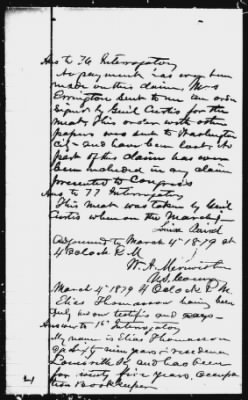 Ans to 76 Interrogatory
No payment has ever been
made on this claim. Mrs
Errington sent to me an order
signed by Genl Curtis for the
meat. This order with other
papers was sent to Washington
City and have been lost. No
part of this claim has ever
been included in any claim
presented to Congress
Ans to 77 Interrogatory
This meat was taken by Genl
Curtis when on the March
Adjourned to March 4" 1879 at
4 Oclock P.M
March 4" 1879 4 Oclock P.M.
Elias Thomasson having been
duly sworn testifies and says-
Answer to 1st Interrogatory
My name is Elias Thomasson
Age fifty nine years residence
and has been
for years, occupa
tion Bookkeeper